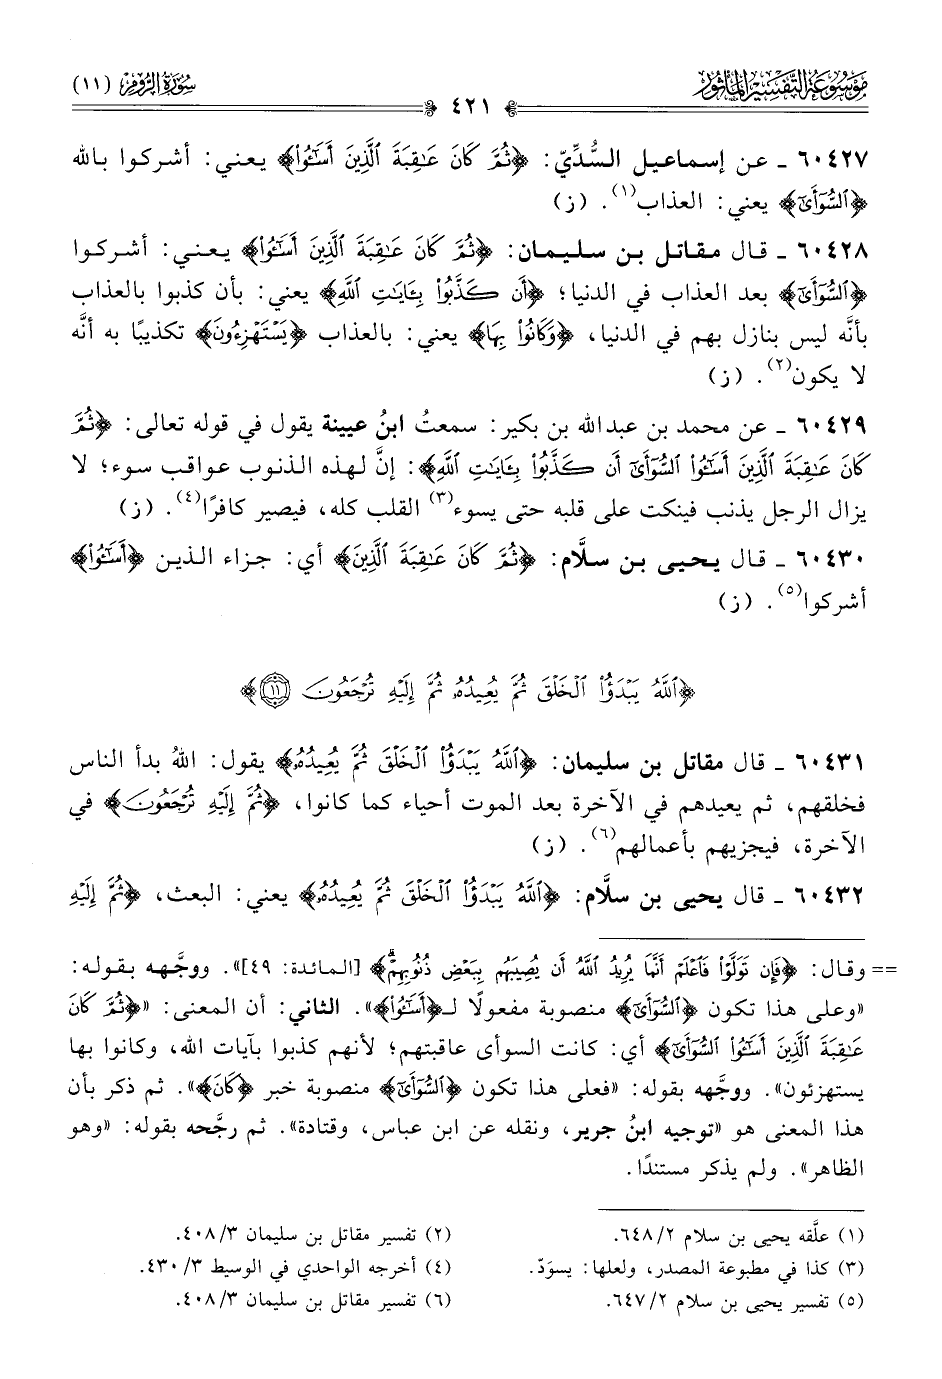 مَوْسُوعَة التَّفْسِير المَأثُور
سُورَةُ الرُّومِ (١١)
٤٢١
٦٠٤٢٧ ـ عن إسماعيل السُّدِّيّ: ﴿ثُمَّ كَانَ عَٰقِبَةَ ٱلَّذِينَ أَسَٰٓـُٔوا۟﴾ يعني: أشركوا بالله
﴿ٱلسُّوٓأَىٰٓ﴾ يعني: العذاب(١). (ز)
٦٠٤٢٨ ـ قال مقاتل بن سليمان: ﴿ثُمَّ كَانَ عَٰقِبَةَ ٱلَّذِينَ أَسَٰٓـُٔوا۟﴾ يعني: أشركوا
﴿ٱلسُّوٓأَىٰٓ﴾ بعد العذاب في الدنيا؛ ﴿أَن كَذَّبُوا۟ بِـَٔايَٰتِ ٱللَّهِ﴾ يعني: بأن كذبوا بالعذاب
بأنَّه ليس بنازل بهم في الدنيا، ﴿وَكَانُوا۟ بِهَا﴾ يعني: بالعذاب ﴿يَسْتَهْزِءُونَ﴾ تكذيبًا به أنَّه
لا يكون(٢). (ز)
٦٠٤٢٩ ـ عن محمد بن عبدالله بن بكير: سمعتُ ابنُ عيينة يقول في قوله تعالى: ﴿ثُمَّ
كَانَ عَٰقِبَةَ ٱلَّذِينَ أَسَٰٓـُٔوا۟ ٱلسُّوٓأَىٰٓ أَن كَذَّبُوا۟ بِـَٔايَٰتِ ٱللَّهِ﴾: إنَّ لهذه الذنوب عواقب سوء؛ لا
يزال الرجل يذنب فينكت على قلبه حتى يسوء(٣) القلب كله، فيصير كافرًا(٤). (ز)
٦٠٤٣٠ ـ قال يحيى بن سلَّام: ﴿ثُمَّ كَانَ عَٰقِبَةَ ٱلَّذِينَ﴾ أي: جزاء الذين ﴿أَسَٰٓـُٔوا۟﴾
أشركوا(٥). (ز)
﴿ٱللَّهُ يَبْدَؤُا۟ ٱلْخَلْقَ ثُمَّ يُعِيدُهُۥ ثُمَّ إِلَيْهِ تُرْجَعُونَ ١١﴾
٦٠٤٣١ ـ قال مقاتل بن سليمان: ﴿ٱللَّهُ يَبْدَؤُا۟ ٱلْخَلْقَ ثُمَّ يُعِيدُهُۥ﴾ يقول: اللهُ بدأ الناس
فخلقهم، ثم يعيدهم في الآخرة بعد الموت أحياء كما كانوا، ﴿ثُمَّ إِلَيْهِ تُرْجَعُونَ﴾ في
الآخرة، فيجزيهم بأعمالهم(٦). (ز)
٦٠٤٣٢ ـ قال يحيى بن سلَّام: ﴿ٱللَّهُ يَبْدَؤُا۟ ٱلْخَلْقَ ثُمَّ يُعِيدُهُۥ﴾ يعني: البعث، ﴿ثُمَّ إِلَيْهِ
== وقال: ﴿فَإِن تَوَلَّوْا۟ فَٱعْلَمْ أَنَّمَا يُرِيدُ ٱللَّهُ أَن يُصِيبَهُم بِبَعْضِ ذُنُوبِهِمْ﴾ [المائدة: ٤٩]». ووجَّهه بقوله:
«وعلى هذا تكون ﴿ٱلسُّوٓأَىٰٓ﴾ منصوبة مفعولًا لـ﴿أَسَٰٓـُٔوا۟﴾». الثاني: أن المعنى: «﴿ثُمَّ كَانَ
عَٰقِبَةَ ٱلَّذِينَ أَسَٰٓـُٔوا۟ ٱلسُّوٓأَىٰٓ﴾ أي: كانت السوأى عاقبتهم؛ لأنهم كذبوا بآيات الله، وكانوا بها
يستهزئون». ووجَّهه بقوله: «فعلى هذا تكون ﴿ٱلسُّوٓأَىٰٓ﴾ منصوبة خبر ﴿كَانَ﴾». ثم ذكر بأن
هذا المعنى هو «توجيه ابنُ جرير، ونقله عن ابن عباس، وقتادة». ثم رجَّحه بقوله: «وهو
الظاهر». ولم يذكر مستندًا.
(١) علَّقه يحيى بن سلام ٢/ ٦٤٨.
(٢) تفسير مقاتل بن سليمان ٣/ ٤٠٨.
(٣) كذا في مطبوعة المصدر، ولعلها: يسوَدّ.
(٤) أخرجه الواحدي في الوسيط ٣/ ٤٣٠.
(٥) تفسير يحيى بن سلام ٢/ ٦٤٧.
(٦) تفسير مقاتل بن سليمان ٣/ ٤٠٨.